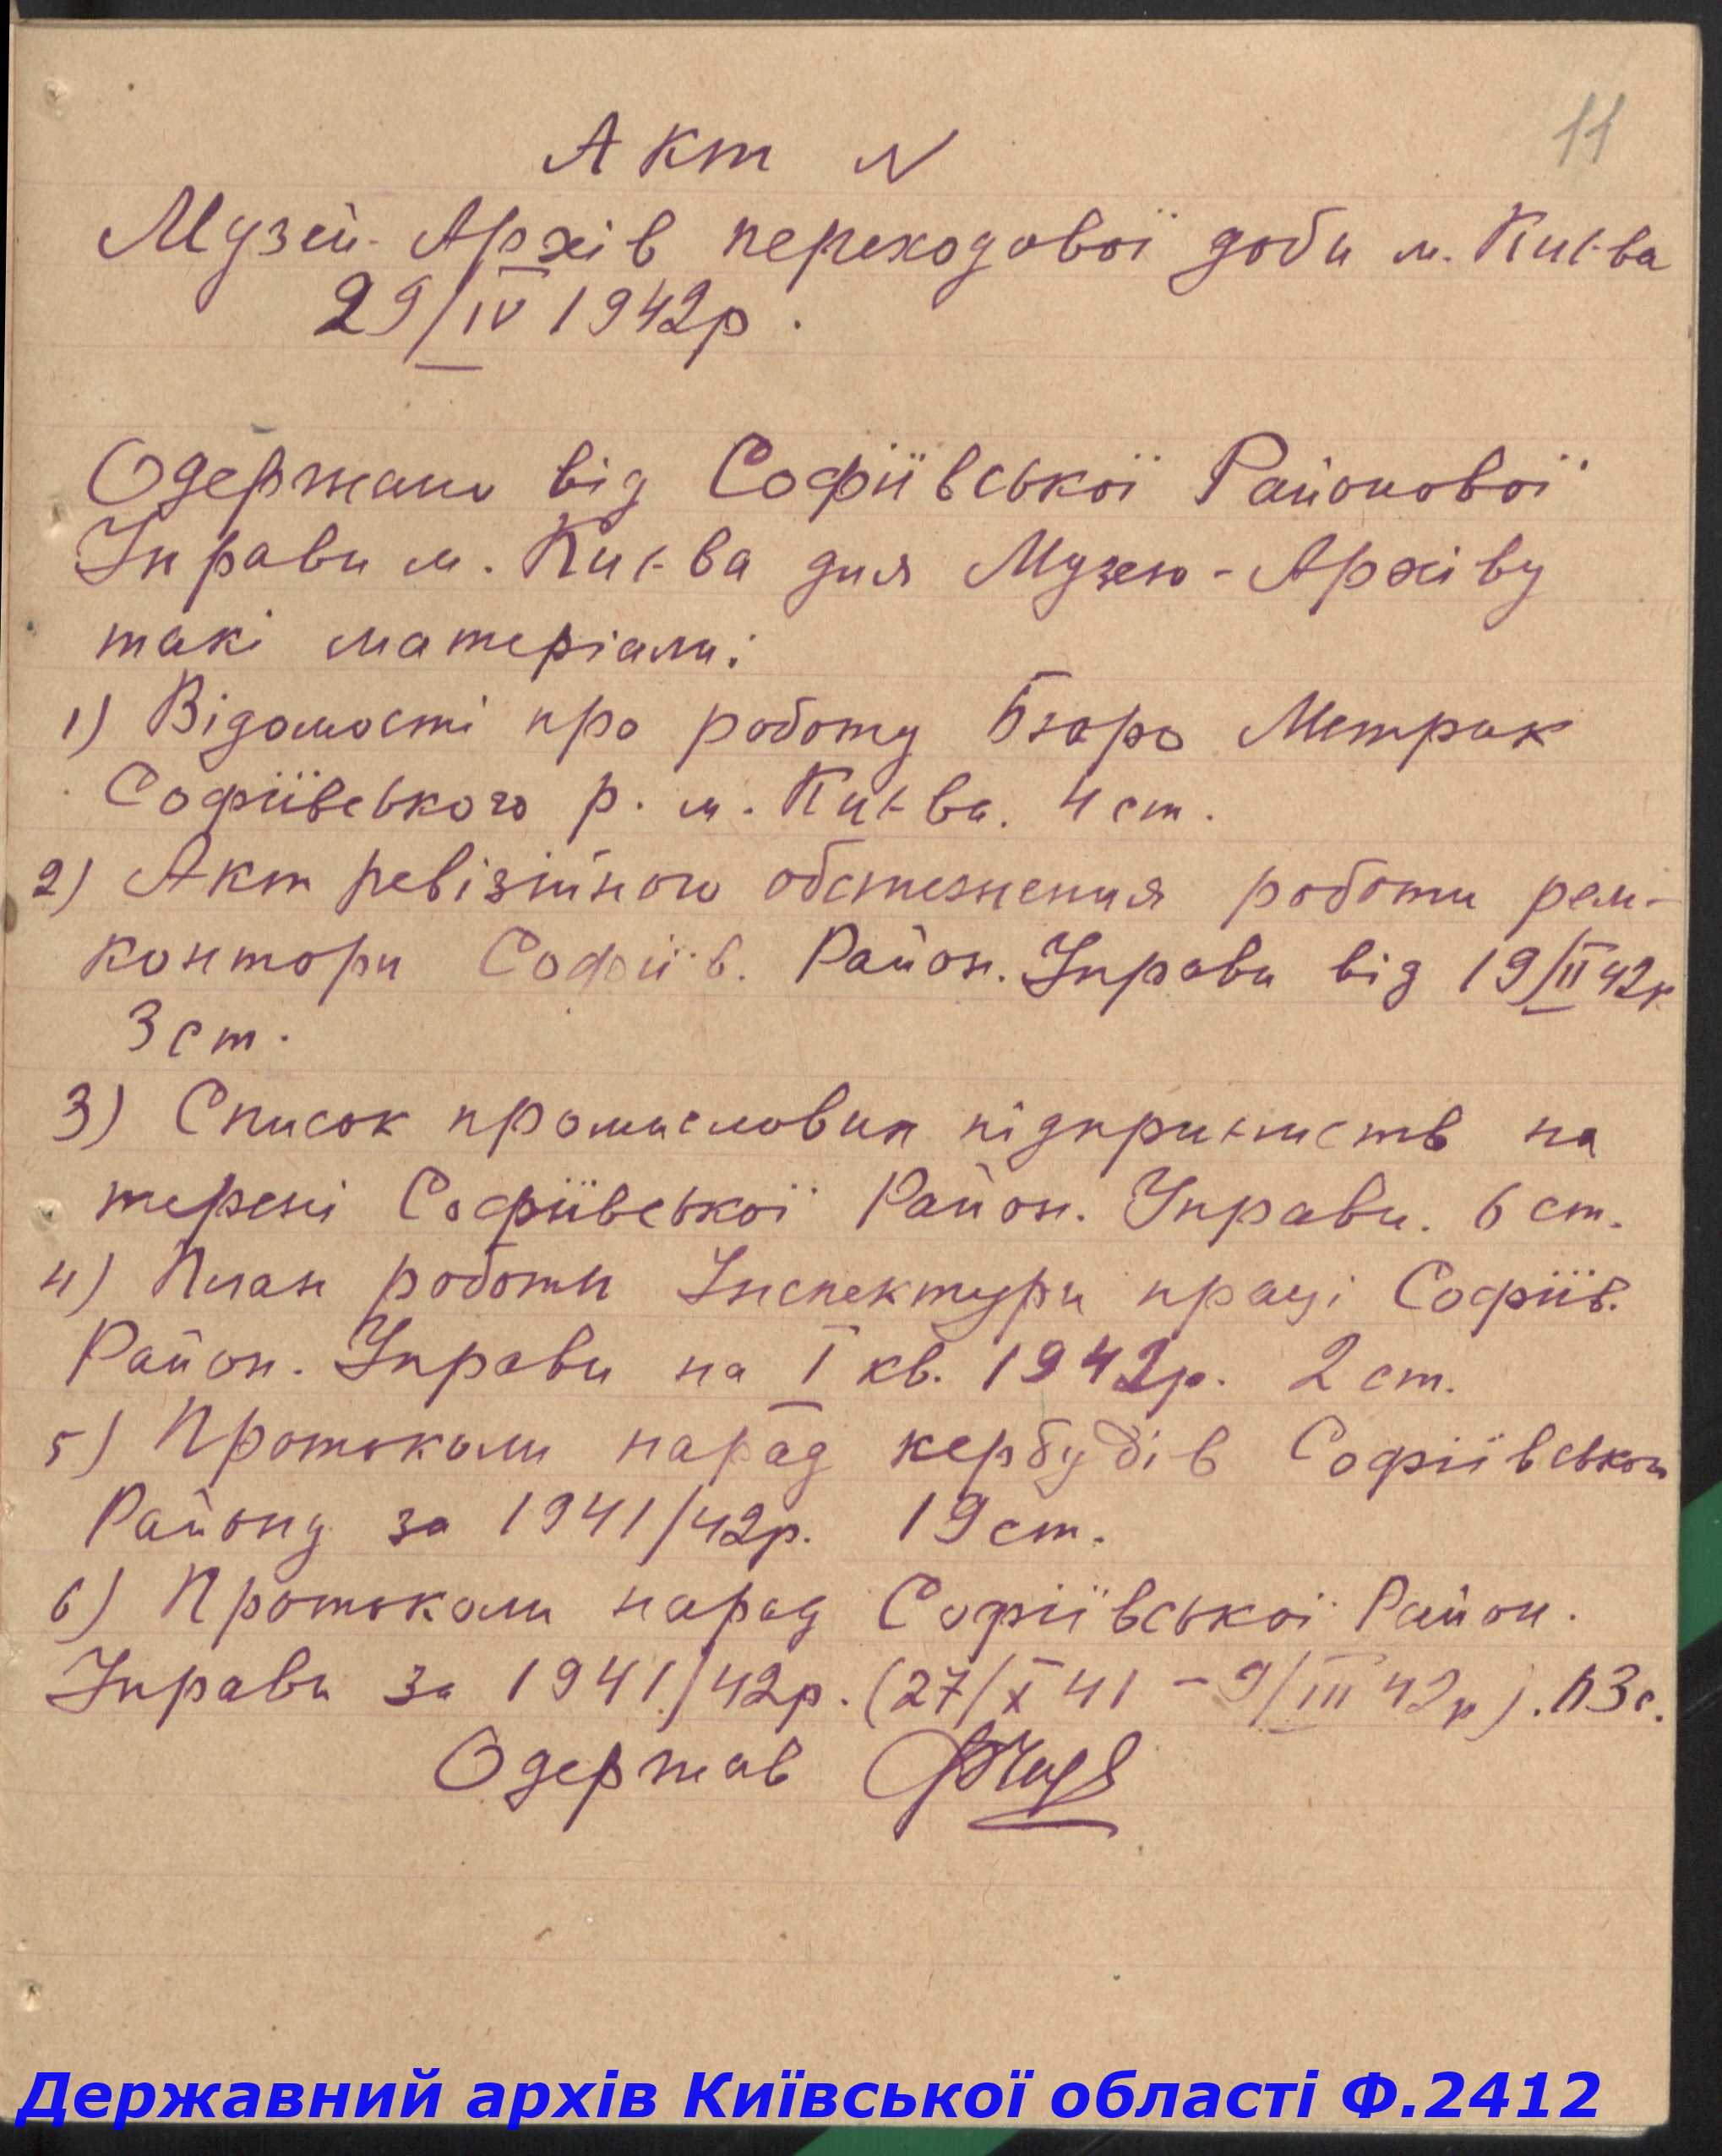 11
Акт N
Музей-Архів переходової доби м. Києва
29/IV 1942р.
Одержано від Софіївської Районової
Управи м. Києва для Музею-Архіву
такі матеріали:
1) Відомості про роботу Бюро Метрик
Софіївського р. м. Києва. 4 ст.
2) Акт ревізійного обстеження роботи рем-
контори Софіїв. Район. Управи від 19/II 42р.
3 ст.
3) Список промислових підприємств на
терені Софіївської Район. Управи. 6 ст.
4) План роботи Інспектури праці Софіїв.
Район. Управи на I кв. 1942р. 2 ст.
5) Протоколи нарад кербудів Софіївськог
Району за 1941/42р. 19 ст.
6) Протоколи нарад Софіївської Район.
Управи за 1941/42р. (27/X 41 – 9/III 42р).
Одержав
Державний архів Київської області Ф.2412